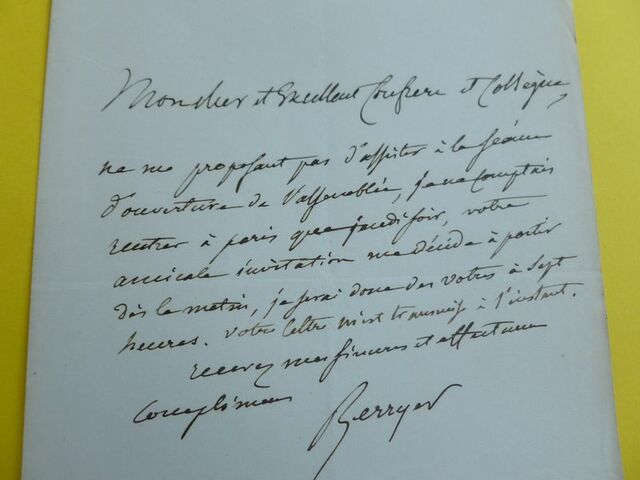 Mon cher et Excellent Confrere et Collègue,
ne me proposant pas d'assister à la séance
d'ouverture de l'assemblée, je ne comptais
rentrer à paris que jeudi soir, votre
amicale invitation me décide à partir
dès le matin, je serai donc des votres à Sept
heures. votre lettre m'est transmise à l'instant.
recevez mes sinceres et affectueux
Complimens
Berryer